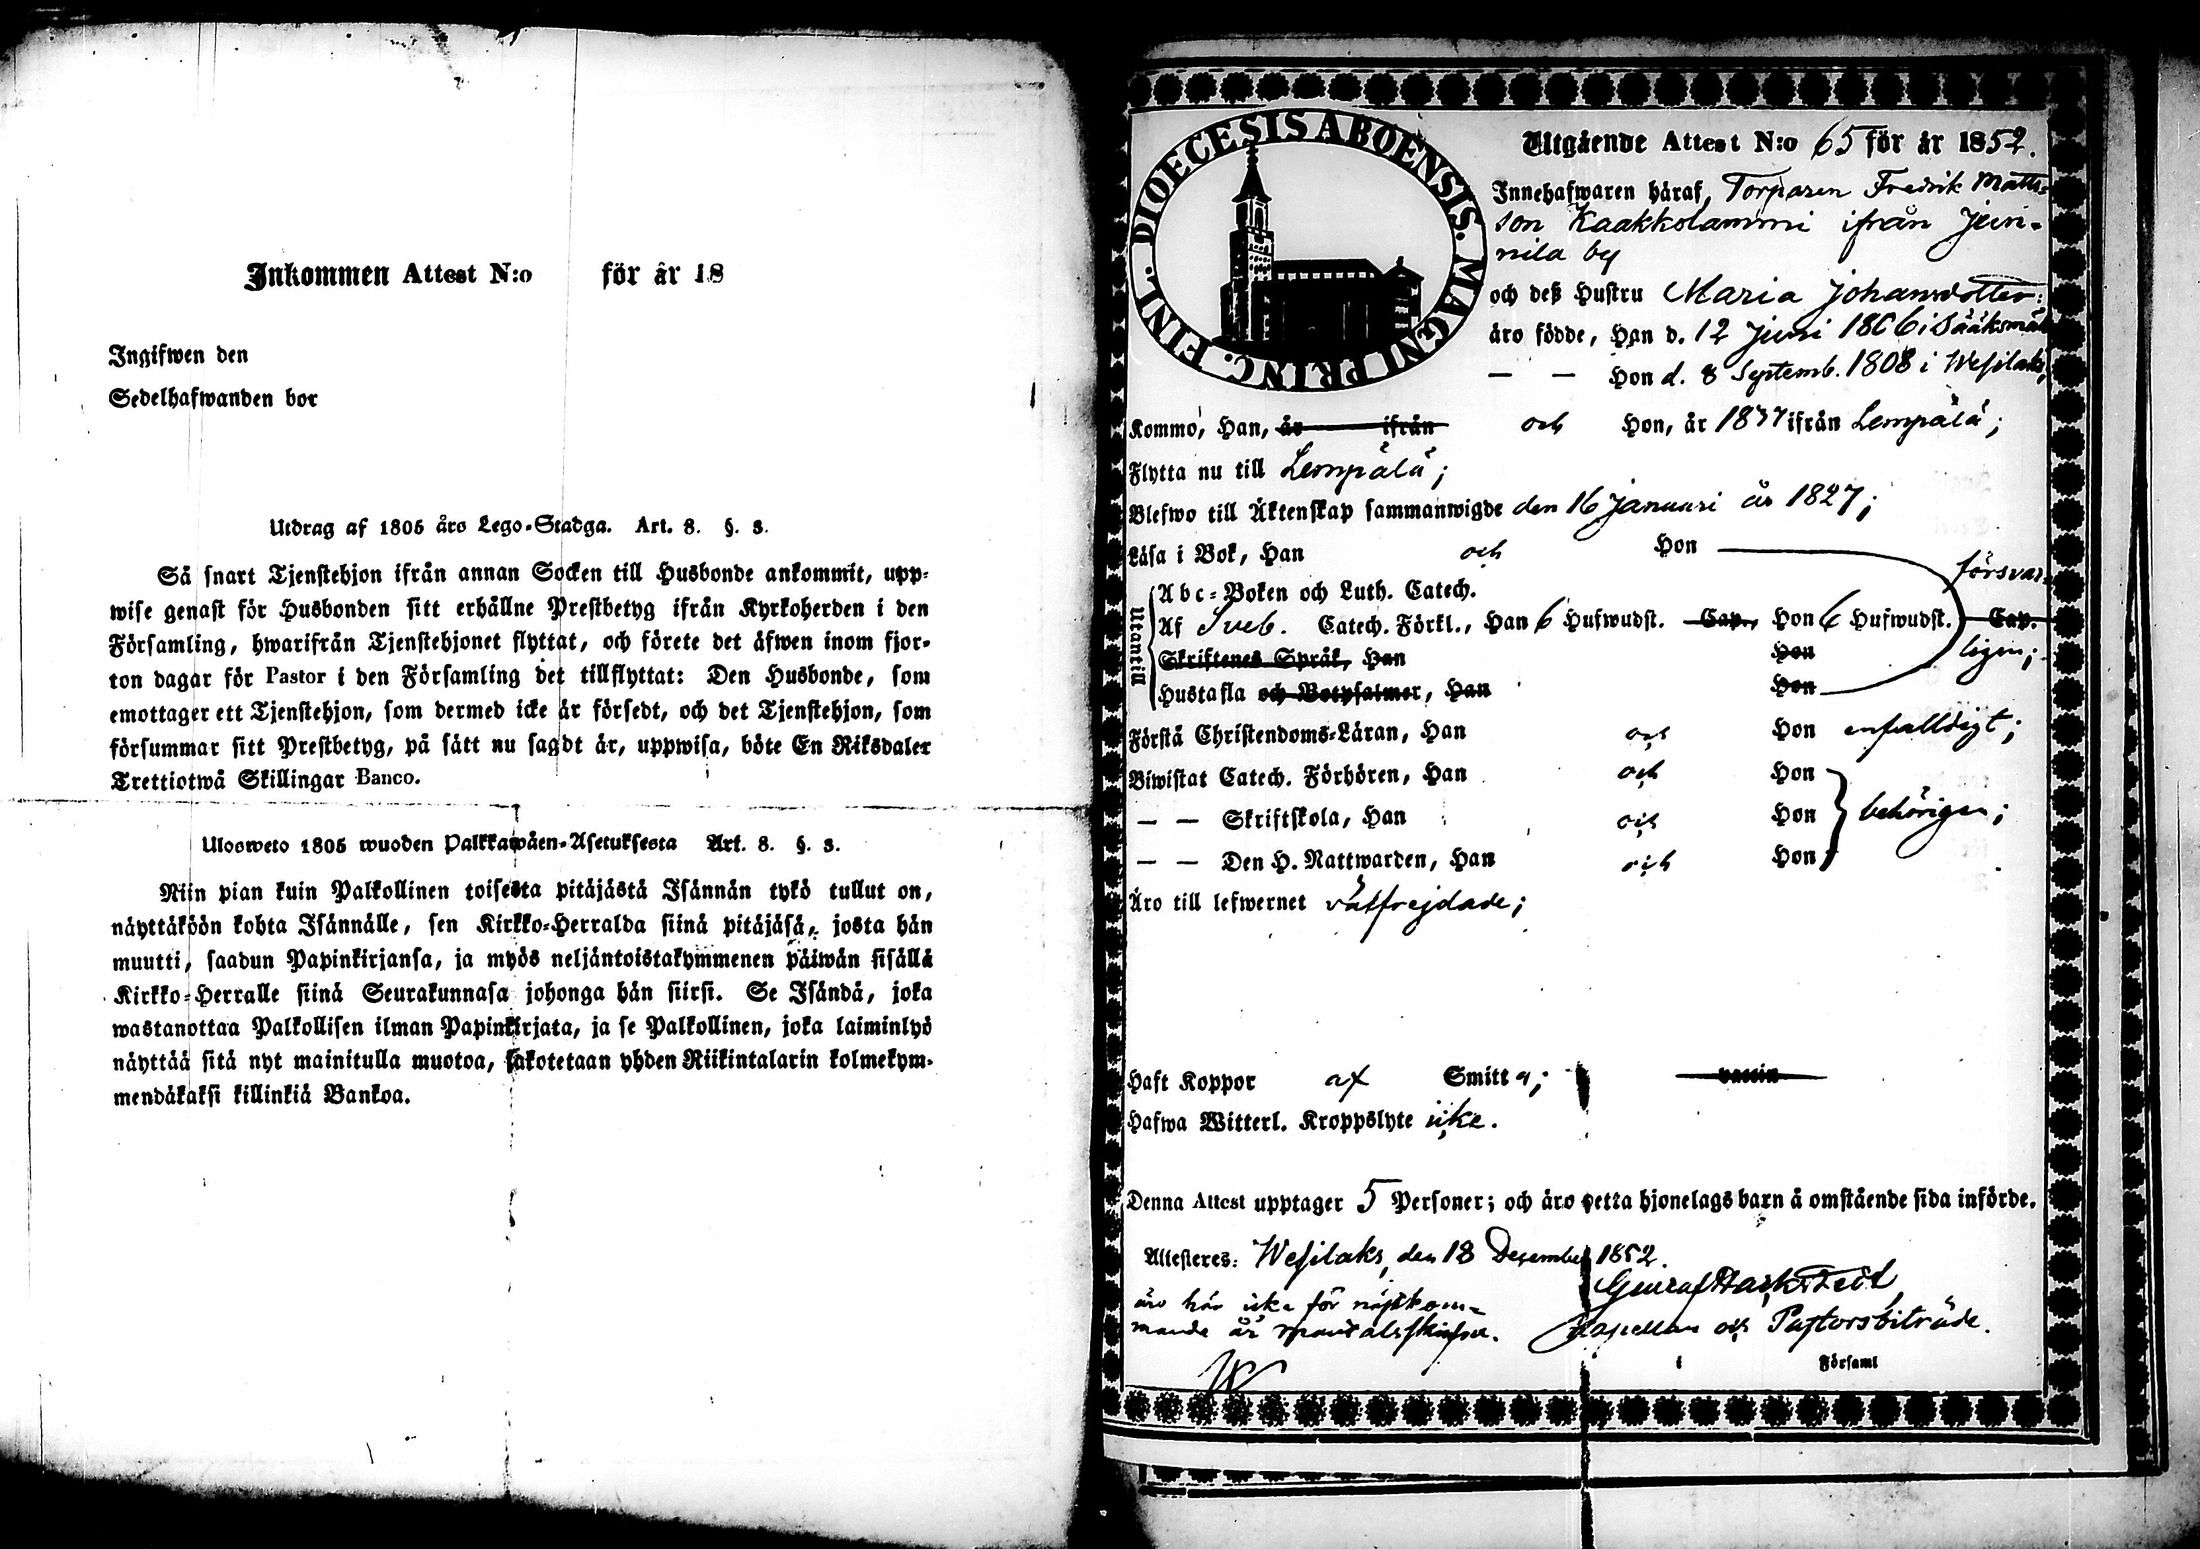 Inkommen Attest N:o för år 18
Ingifwen den
Sedelhafwanden bor
Utdrag af 1805 års Lego-Stadga. Art. 8. §. 3.
Så snart Tjenstehjon ifrån annan Socken till Husbonde ankommit, upp-
wise genast för Husbonden sitt erhållne Prestbetyg ifrån Kyrkoherden i den
Församling, hwarifrån Tjenstehjonet flyttat, och förete det äfwen inom fjor-
ton dagar för Pastor i den Församling det tillflyttat: Den Husbonde, som
emottager ett Tjenstehjon, som dermed icke är försedt, och det Tjenstehjon, som
försummar sitt Prestbetyg, på sätt nu sagdt är, uppwisa, böte En Riksdaler
Trettiotwå Skillingar Banco.
Ulosweto 1805 wuoden Palkkawäen-Asetuksesta Art. 8. §. 3.
Niin pian kuin Palkollinen toisesta pitäjästä Isännän tykö tullut on,
näyttäköön kohta Isännälle, sen Kirkko-Herralda siinä pitäjäsä, josta hän
muutti, saadun Papinkirjansa, ja myös neljäntoistakymmenen päiwän sisällä
Kirkko-Herralle siinä Seurakunnasa johonga hän siirsi. Se Isändä, joka
wastanottaa Palkollisen ilman Papinkirjata, ja se Palkollinen, joka laiminlyö
näyttää sitä nyt mainitulla muotoa, sakotetaan yhden Riikintalarin kolmekym-
mendäkaksi killinkiä Bankoa.
DIOECESIS ABOENSIS. MAGNI PRINC. FINL.
Utgående Attest N:o 65 för år 1852.
Innehafwaren häraf, Torparen Fredrik Matts-
son Kaakkolammi ifrån Jun-
nila by
och deß Hustru Maria Johansdotter:
äro födde, Han d. 12 Juni 1806 i Sääksmäki
— — Hon d. 8 Septemb. 1808 i Wesilaks;
Kommo, Han, år ifrån och Hon, år 1837 ifrån Lempälä;
Flytta nu till Lempälä;
Blefwo till Äktenskap sammanwigde den 16 Januari år 1827;
Läsa i Bok, Han och Hon försvar-
Utantill
Abc-Boken och Luth. Catech.
Af Sveb. Catech. Förkl., Han 6 Hufwudst. Cap., Hon 6 Hufwudst. Cap.
Skriftenes Språk, Han Hon ligen;
Hustafla och Botpsalmer, Han Hon
Förstå Christendoms-Läran, Han och Hon enfalldigt;
Biwistat Catech. Förhören, Han och Hon
— — Skriftskola, Han och Hon behörigen;
— — Den H. Nattwarden, Han och Hon
Äro till lefwernet wälfrejdade;
Haft Koppor af Smitta; vaccin
Hafwa Witterl. Kroppslyte icke.
Denna Attest upptager 5 Personer; och äro detta hjonelags barn å omstående sida införde.
Attesteres: Wesilaks, den 18 December 1852.
äro här icke för nästkom-
mande år mantalsskrifna. Kapellan och Pastorsbiträde.
i Församl